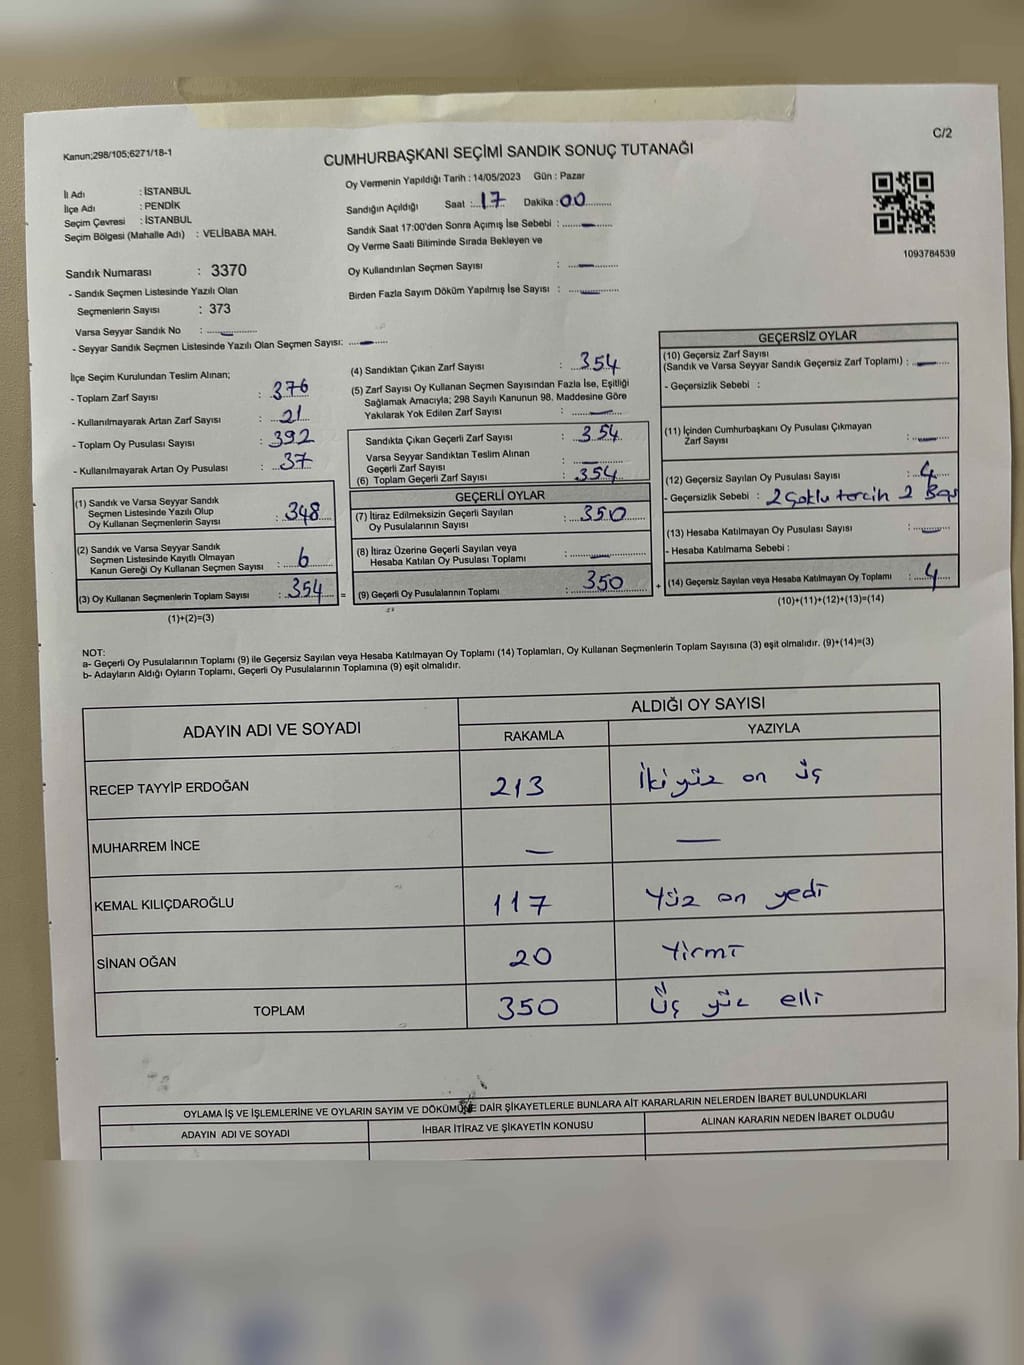 C/2
Kanun;298/105;6271/18-1
CUMHURBAŞKANI SEÇİMİ SANDIK SONUÇ TUTANAĞI
İl Adı : İSTANBUL
İlçe Adı : PENDİK
Seçim Çevresi : İSTANBUL
Seçim Bölgesi (Mahalle Adı) : VELİBABA MAH.
Oy Vermenin Yapıldığı Tarih : 14/05/2023 Gün : Pazar
Sandığın Açıldığı Saat : 17 Dakika : 00
Sandık Saat 17:00'den Sonra Açımış İse Sebebi : —
Oy Verme Saati Bitiminde Sırada Bekleyen ve
Oy Kullandırılan Seçmen Sayısı : —
Birden Fazla Sayım Döküm Yapılmış İse Sayısı : —
1093764539
Sandık Numarası : 3370
- Sandık Seçmen Listesinde Yazılı Olan
Seçmenlerin Sayısı : 373
Varsa Seyyar Sandık No : —
- Seyyar Sandık Seçmen Listesinde Yazılı Olan Seçmen Sayısı: —
İlçe Seçim Kurulundan Teslim Alınan;
- Toplam Zarf Sayısı : 376
- Kullanılmayarak Artan Zarf Sayısı : 21
- Toplam Oy Pusulası Sayısı : 392
- Kullanılmayarak Artan Oy Pusulası : 37
(1) Sandık ve Varsa Seyyar Sandık
Seçmen Listesinde Yazılı Olup
Oy Kullanan Seçmenlerin Sayısı : 348
(2) Sandık ve Varsa Seyyar Sandık
Seçmen Listesinde Kayıtlı Olmayan
Kanun Gereği Oy Kullanan Seçmen Sayısı : 6
(3) Oy Kullanan Seçmenlerin Toplam Sayısı : 354 =
(1)+(2)=(3)
(4) Sandıktan Çıkan Zarf Sayısı : 354
(5) Zarf Sayısı Oy Kullanan Seçmen Sayısından Fazla İse, Eşitliği
Sağlamak Amacıyla; 298 Sayılı Kanunun 98. Maddesine Göre
Yakılarak Yok Edilen Zarf Sayısı : —
Sandıkta Çıkan Geçerli Zarf Sayısı : 354
Varsa Seyyar Sandıktan Teslim Alınan
Geçerli Zarf Sayısı : —
(6) Toplam Geçerli Zarf Sayısı : 354
GEÇERLİ OYLAR
(7) İtiraz Edilmeksizin Geçerli Sayılan
Oy Pusulalarının Sayısı : 350
(8) İtiraz Üzerine Geçerli Sayılan veya
Hesaba Katılan Oy Pusulası Toplamı : —
(9) Geçerli Oy Pusulalarının Toplamı : 350 +
GEÇERSİZ OYLAR
(10) Geçersiz Zarf Sayısı
(Sandık ve Varsa Seyyar Sandık Geçersiz Zarf Toplamı) : —
- Geçersizlik Sebebi :
(11) İçinden Cumhurbaşkanı Oy Pusulası Çıkmayan
Zarf Sayısı : —
(12) Geçersiz Sayılan Oy Pusulası Sayısı : 4
- Geçersizlik Sebebi : 2 çoklu tercih 2 Boş
(13) Hesaba Katılmayan Oy Pusulası Sayısı : —
- Hesaba Katılmama Sebebi :
(14) Geçersiz Sayılan veya Hesaba Katılmayan Oy Toplamı : 4
(10)+(11)+(12)+(13)=(14)
NOT:
a- Geçerli Oy Pusulalarının Toplamı (9) ile Geçersiz Sayılan veya Hesaba Katılmayan Oy Toplamı (14) Toplamları, Oy Kullanan Seçmenlerin Toplam Sayısına (3) eşit olmalıdır. (9)+(14)=(3)
b- Adayların Aldığı Oyların Toplamı, Geçerli Oy Pusulalarının Toplamına (9) eşit olmalıdır.
ADAYIN ADI VE SOYADI
ALDIĞI OY SAYISI
RAKAMLA YAZIYLA
RECEP TAYYİP ERDOĞAN 213 İki yüz on üç
MUHARREM İNCE — —
KEMAL KILIÇDAROĞLU 117 Yüz on yedi
SİNAN OĞAN 20 Yirmi
TOPLAM 350 Üç yüz elli
OYLAMA İŞ VE İŞLEMLERİNE VE OYLARIN SAYIM VE DÖKÜMÜNE DAİR ŞİKAYETLERLE BUNLARA AİT KARARLARIN NELERDEN İBARET BULUNDUKLARI
ADAYIN ADI VE SOYADI İHBAR İTİRAZ VE ŞİKAYETİN KONUSU ALINAN KARARIN NEDEN İBARET OLDUĞU